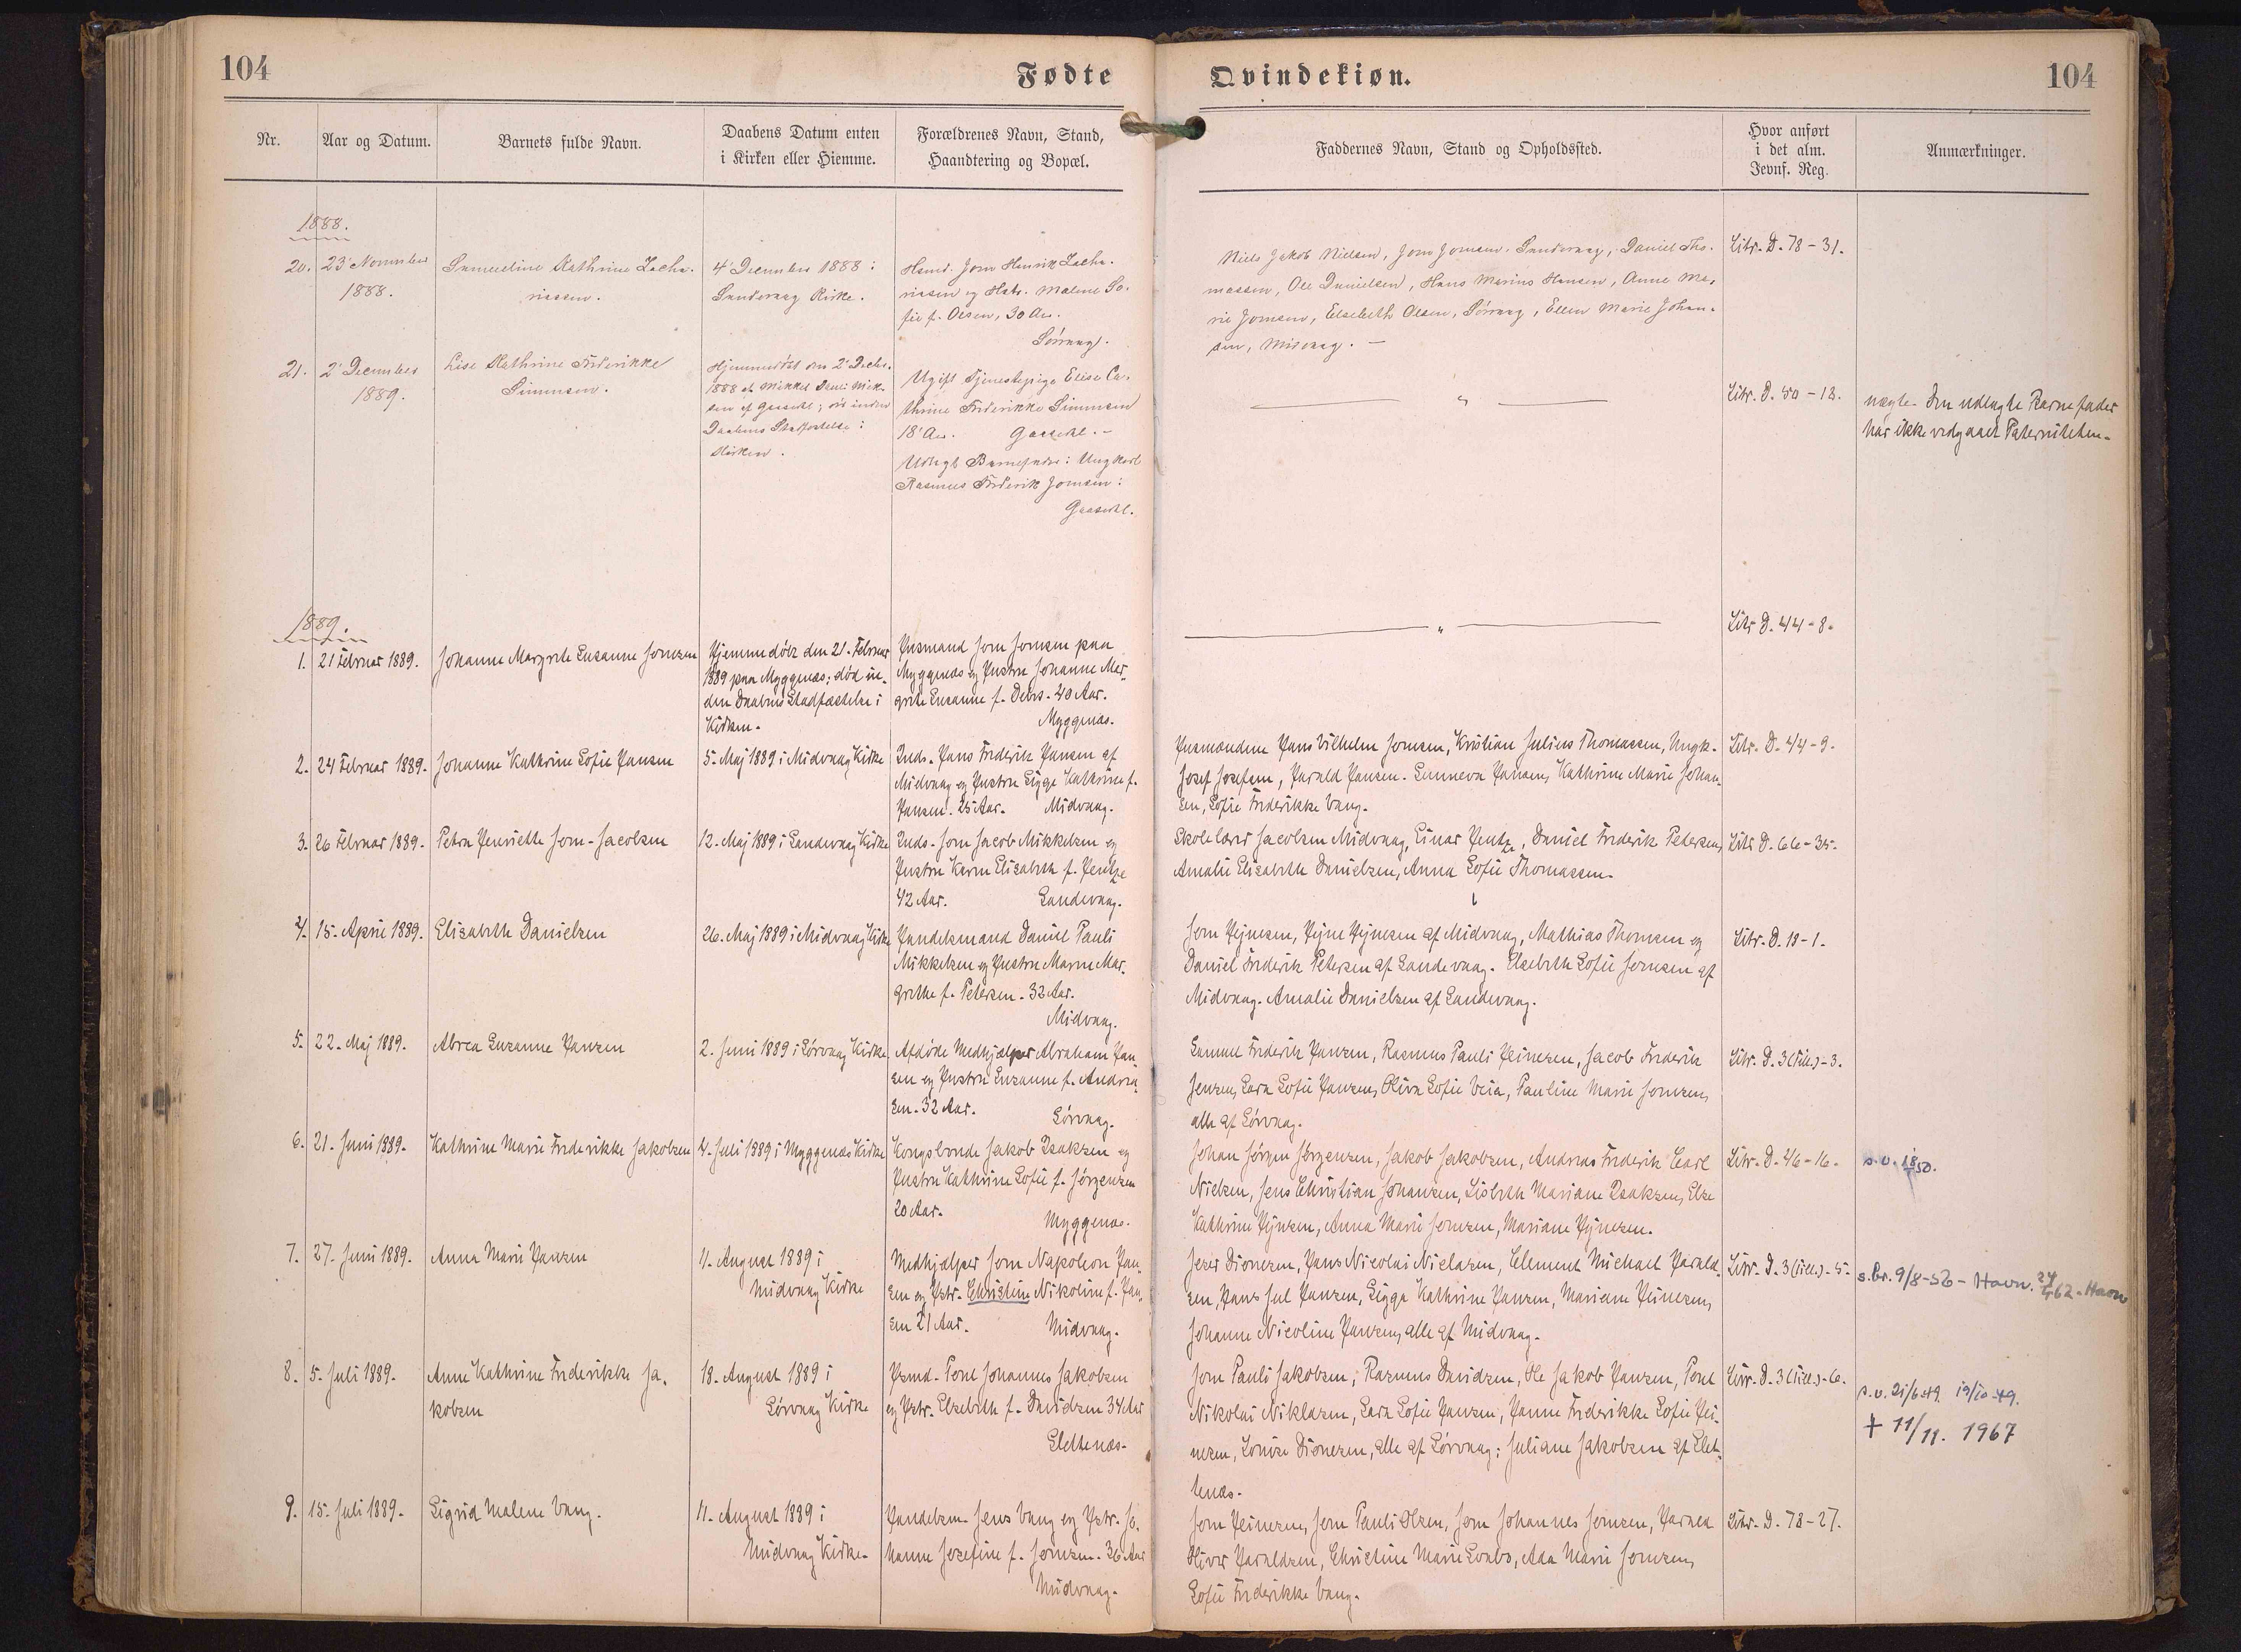 104
Fødte
Nr.
Aar og Datum.
Barnets fulde Navn.
Daabens Datum enten
i Kirken eller Hiemme.
Forældrenes Navn, Stand,
Haandtering og Bopæl.
Qvindekiøn.
104
Faddernes Navn, Stand og Opholdssted.
Hvor anført
i det alm.
Jevnf. Reg.
Anmærkninger.
1888.
20.
23' November
1888.
Kathrine Zacha-
riassen.
4' December 1888 i
Sandevaag Kirke.
Husmd. Jom Henrik Zacha-
riasen og Hstr. Malene So-
fie f. Olsen, 30 Aar.
Sörvaag.
Niels Jakob Nielsen, Jom Jomsen Sandevaag, Daniel Tho-
massen, Ole Danielsen, Hans Marius Hansen, Anne Ma-
rie Jomsen, Elsebeth Olsen, Sörvaag, Elen Marie Johan-
sen, Midvaag. –
Litr. D. 78 – 31.
21.
2' December
1889.
Lise Kathrine Friderikke
Simonsen.
Hjemmedöbt den 2' Decbr.
1888 af Mikkel Mik-
sen af Gaasedal; död inden
Daabens Stadfæstelse i
Kirken.
Ugift Tjenestepige Elise Ca-
thrine Friderikke Simonsen
18' Aar. Gaasedal. –
Udlagt Barnefader: Ungkarl
Rasmus Friderik Jomsen i
Gaasedal.
"
Litr. D. 50 – 12.
uægte. Den udlagte Barnefader
har ikke vedgaaet Paterniteten.
1889.
1.
21 Februar 1889.
Johanne Margrete Susanne Jomsen
Hjemmedöbt den 21. Februar
1889 paa Myggenæs; död in-
den Daabens Stadfæstelse i
Kirken.
Husmand Jom Jomsen paa
Myggenæs og Hustru Johanne Mar-
grete Susanne f. Debes. 40 Aar.
Myggenæs.
"
Litr D. 44 – 8.
2.
24 Februar 1889.
Johanne Kathrine Sofie Hansen
5. Maj 1889 i Midvaag Kirke
Inds. Hans Friderik Hansen af
Midvaag og Hustru Sigga Kathrine f.
Hansen. 25 Aar. Midvaag.
Husmændene Hans Vilhelm Jomsen, Kristian Julius Thomassen, Ungk.
Josef Josefsen, Harald Hansen. Sunneva Hansen, Kathrine Marie Johan-
sen, Sofie Friderikke Vang.
Litr. D. 44 – 9.
3.
26 Februar 1889.
Petra Henriette Jom-Jacobsen
12. Maj 1889 i Sandevaag Kirke
Inds. Jom Jacob Mikkelsen og
Hustru Karen Elisabeth f. Hentze
42 Aar. Sandevaag.
Skolelærer Jacobsen Midvaag, Einar Hentze, Daniel Friderik Petersen,
Amalie Elisabeth Danielsen, Anna Sofie Thomassen.
Litr D. 66 – 35.
4.
15. April 1889.
Elisabeth Danielsen
26. Maj 1889 i Midvaag Kirke
Handelsmand Daniel Pauli
Mikkelsen og Hustru Maren Mar-
grethe f. Petersen. 32 Aar.
Midvaag.
Jom Hejnesen, Hejne Hejnesen af Midvaag, Mathias Thomsen og
Daniel Friderik Petersen af Sandevaag. Elsebeth Sofie Jomsen af
Midvaag. Amalie Danielsen af Sandevaag.
Litr. D. 18 – 1.
5.
22. Maj 1889.
Abrea Susanne Hansen
2. Juni 1889 i Sörvaag Kirke
Afdöde Medhjælper Abraham Han-
sen og Hustru Susanne f. Andrea-
sen. 32 Aar.
Sörvaag.
Samuel Friderik Hansen, Rasmus Pauli Heinesen, Jacob Friderik
Jensen, Sara Sofie Hansen, Oliva Sofie Veia, Pauline Marie Jomsen,
alle af Sörvaag.
Litr. D. 3 (Till.) – 3.
6.
21. Juni 1889.
Kathrine Marie Friderikke Jakobsen
4. Juli 1889 i Myggenæs Kirke
Kongsbonde Jakob Isaksen og
Hustru Kathrine Sofie f. Jörgensen
20 Aar.
Myggenæs.
Johan Jörgen Jörgensen, Jakob Jakobsen, Andreas Friderik Carl
Nielsen, Jens Christian Johansen, Lisbeth Mariane Isaksen, Else
Kathrine Hejnesen, Anna Marie Jomsen, Mariane Hejnesen.
Litr. D. 46 – 16.
7.
27. Juni 1889.
Anna Marie Hansen
11. August 1889 i
Midvaag Kirke
Medhjælper Jom Napoleon Han-
sen og Hstr. Christine Nikoline f. Han-
sen 21 Aar. Midvaag.
Joser Dionesen, Hans Nicolai Niclasen, Clement Michael Harald-
sen, Hans Jul Hansen, Sigga Kathrine Hansen, Mariane Heinesen,
Johanne Nicoline Hansen, alle af Midvaag.
Litr. D. 3 (Till.) – 5.
s.br. 9/8-56 – Havn. 24/4 62 – Havn
8.
5. Juli 1889.
Anne Kathrine Friderikke Ja-
kobsen
18. August 1889 i
Sörvaag Kirke
Hsmd. Poul Johannes Jakobsen
og Hstr. Elsebeth f. Davidsen 34 Aar
Slettenæs.
Jom Pauli Jakobsen, Rasmus Davidsen, Ole Jakob Hansen, Poul
Nikolai Niklasen, Sara Sofie Hansen, Hanne Friderikke Sofie Hei-
nesen, Lovise Dionesen, alle af Sörvaag; Juliane Jakobsen af Slet-
tenæs.
Litr. D. 3 (Till.) – 6.
s.v. 21/6 49. 19/10-49.
† 11/11. 1967
9.
15. Juli 1889.
Sigrid Malene Vang.
11. August 1889 i
Midvaag Kirke.
Handelsm. Jens Vang og Hstr. Jo-
hanne Josefine f. Jomsen. 36 Aar
Midvaag.
Jom Heinesen, Jom Pauli Olsen, Jom Johannes Jomsen, Harald
Oliver Haraldsen, Christine Marie, Ada Marie Jomsen,
Sofie Friderikke Vang.
Litr. D. 78 – 27.